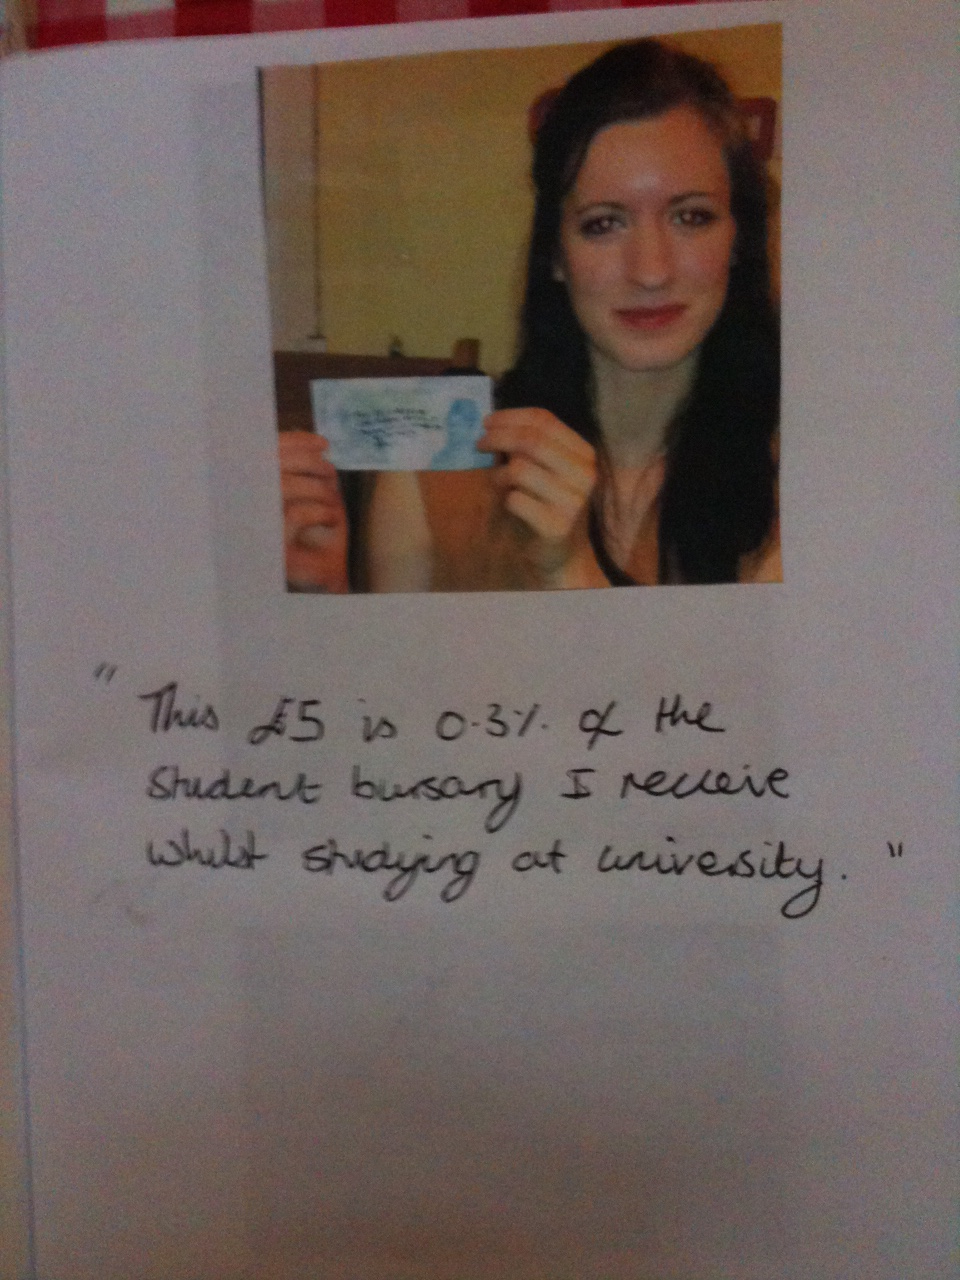 "This £5 is 0.3% of the
student bursary I receive
whilst studying at university."